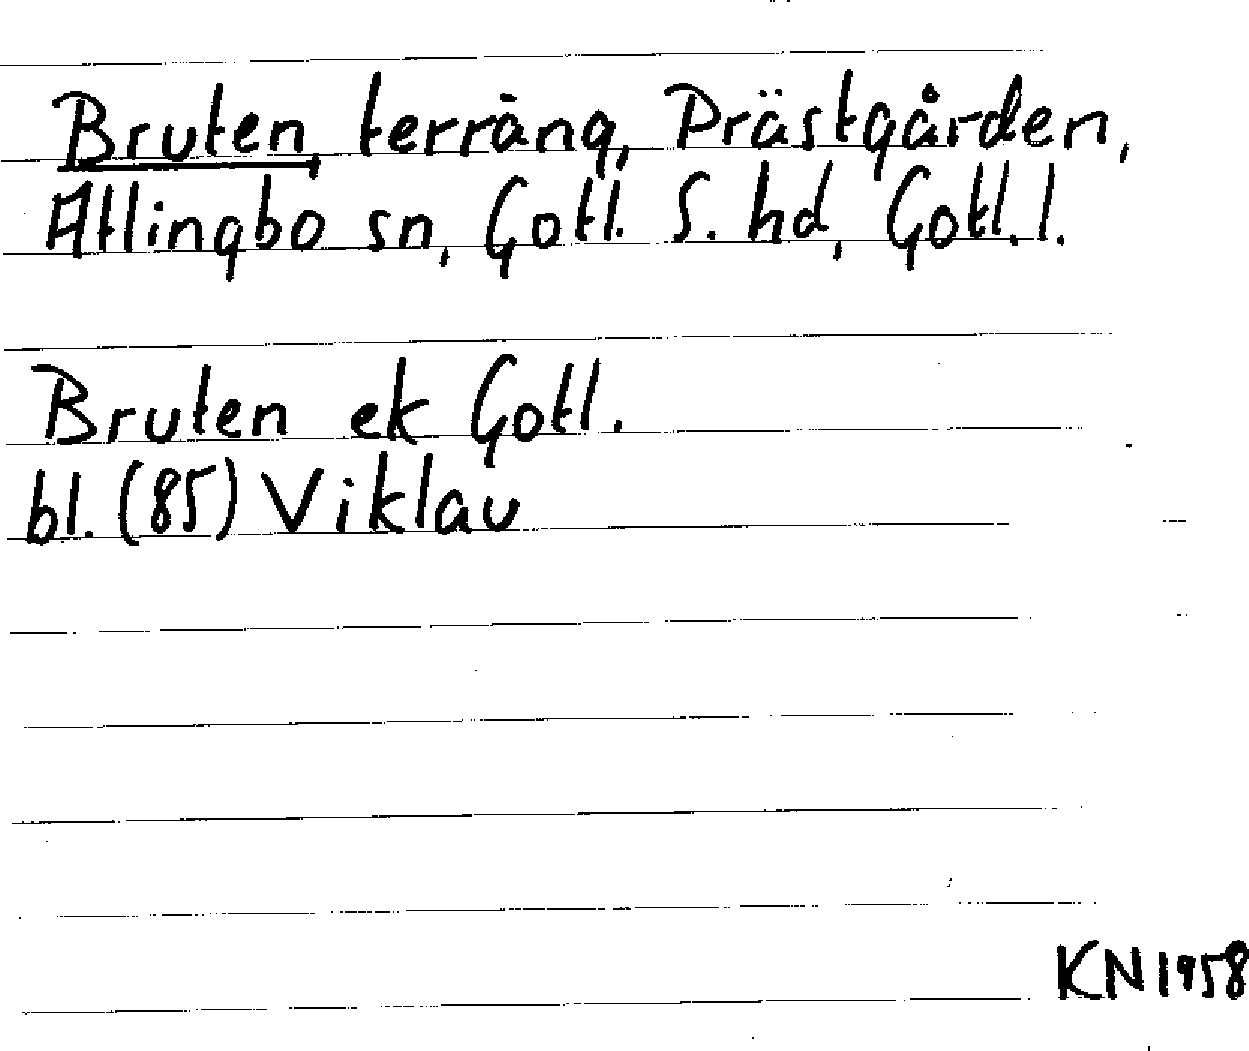 Bruten, terräng, Prästgården,
Atlingbo sn, Gotl. S. hd, Gotl. l.
Bruten ek Gotl.
bl. (85) Viklau
KN 1958